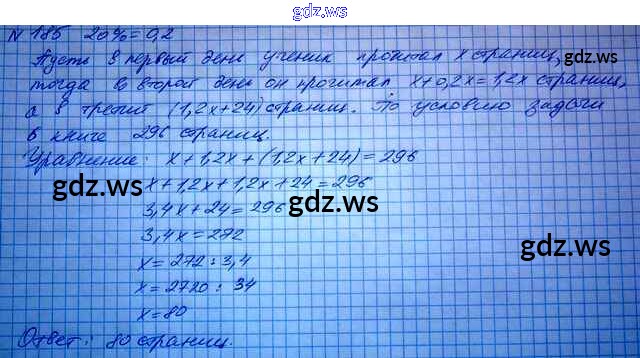 gdz.ws
N 185 20% = 0,2
Пусть в первый день ученик прочитал x страниц,
тогда во второй день он прочитал x+0,2x=1,2x страниц,
а в третий (1,2x+24) страниц. По условию задачи
в книге 296 страниц.
Уравнение: x+1,2x+(1,2x+24)=296
x+1,2x+1,2x+24=296
3,4x+24=296
3,4x=272
x=272:3,4
x=2720:34
x=80
Ответ: 80 страниц.
gdz.ws
gdz.ws
gdz.ws
gdz.ws
gdz.ws
gdz.ws